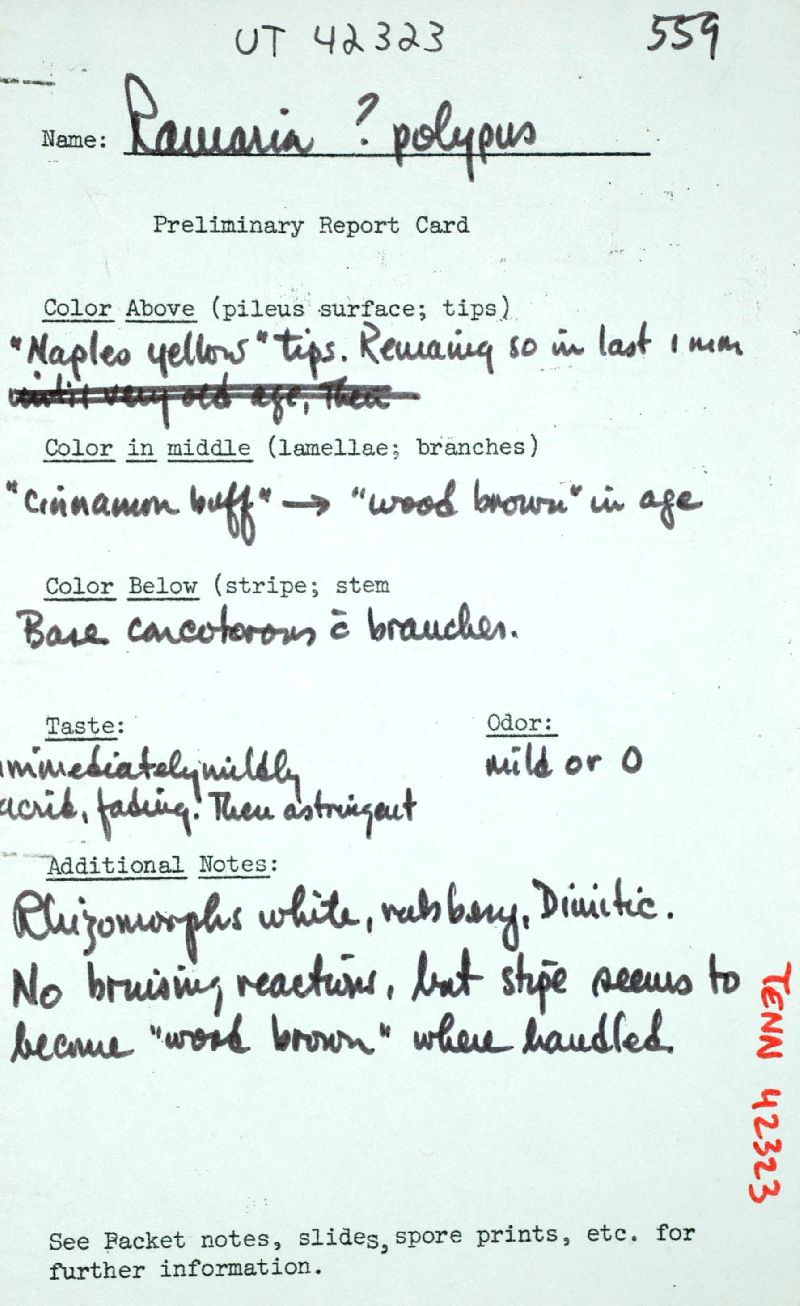 UT 42323 559
Name: Ramaria ? polypus
Preliminary Report Card
Color Above (pileus surface; tips)
"Naples yellow" tips. Remaing so in last 1 mm
until very old age, then
Color in middle (lamellae; branches)
"Cinnamon buff" → "wood brown" in age
Color Below (stripe; stem
Base concolorous c̄ branches.
Taste: Odor:
immediately mildly mild or O
acrid, fading. Then astringent
Additional Notes:
Rhizomorphs white, rubbery, Dimitic.
No bruising reactions, but stipe seems to
become "wood brown" where handled.
TENN 42323
See Packet notes, slides, spore prints, etc. for
further information.